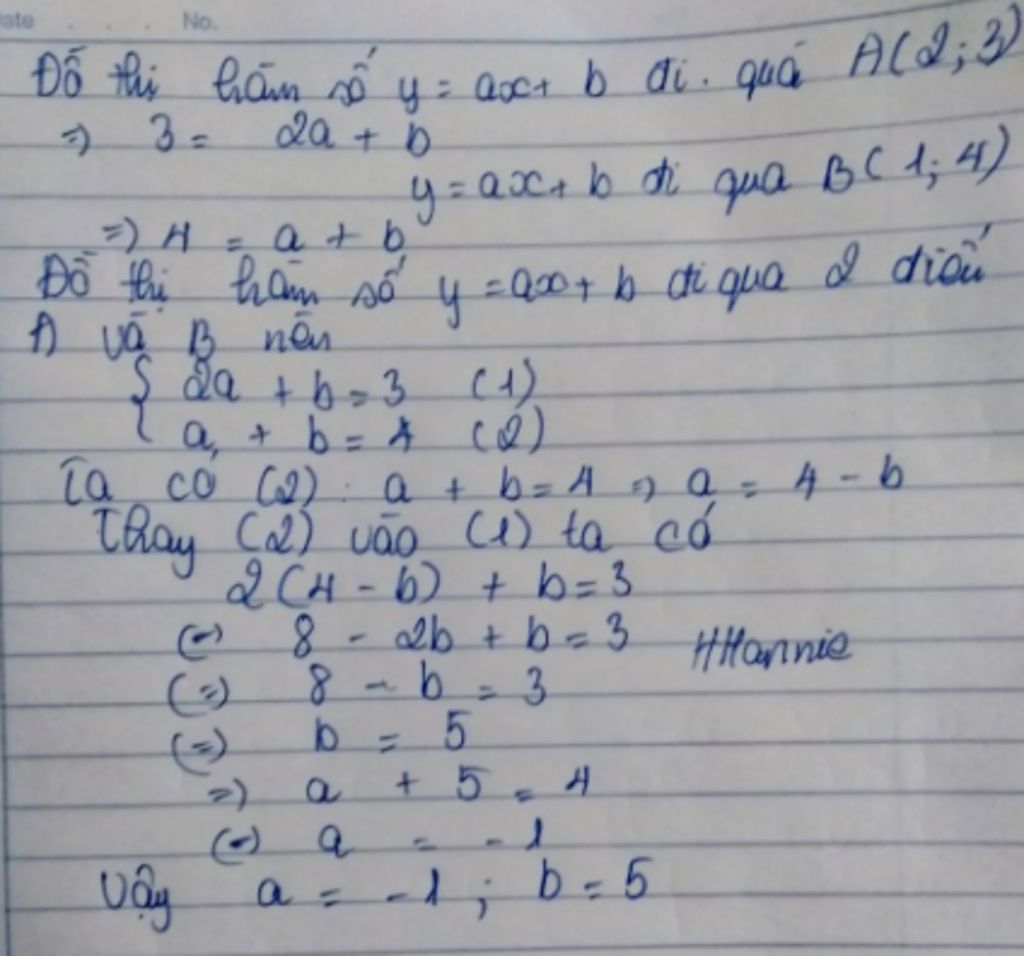 ate . . . No.
Đồ thị hàm số y = ax + b đi . qua A(2;3)
=) 3 = 2a + b
y = ax + b đi qua B(1;4)
=) 4 = a + b
Đồ thị hàm số y = ax + b đi qua 2 điểm
A và B nên
{ 2a + b = 3 (1)
{ a + b = 4 (2)
Ta có (2) : a + b = 4 =) a = 4 - b
Thay (2) vào (1) ta có
2(4 - b) + b = 3
(=) 8 - 2b + b = 3 HHannie
(=) 8 - b = 3
(=) b = 5
=) a + 5 = 4
(=) a = -1
Vậy a = -1 ; b = 5